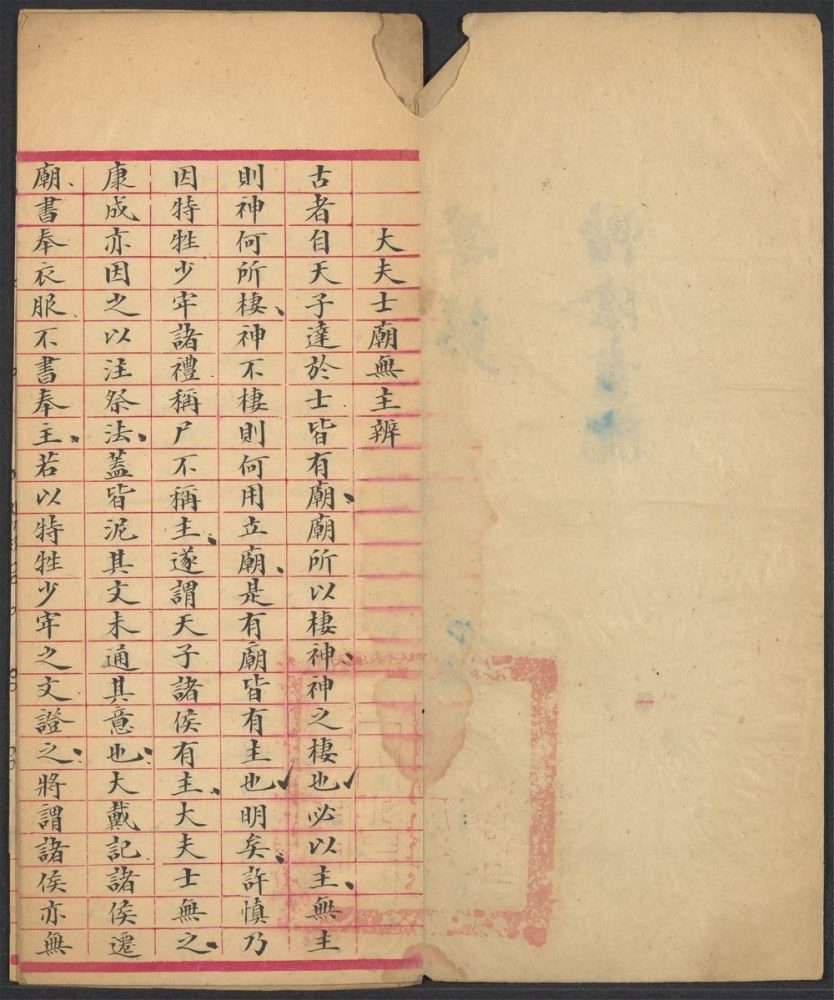 大夫士廟無主辨
古者自天子達於士皆有廟、廟所以棲神、神之棲也必以主、無主
則神何所棲、神不棲則何用立廟、是有廟皆有主也明矣、許慎乃
因特牲少牢諸禮稱尸不稱主、遂謂天子諸侯有主、大夫士無之、
康成亦因之以注祭法、蓋皆泥其文未通其意也、大戴記諸侯遷
廟、書奉衣服不書奉主、若以特牲少牢之文證之、將謂諸侯亦無